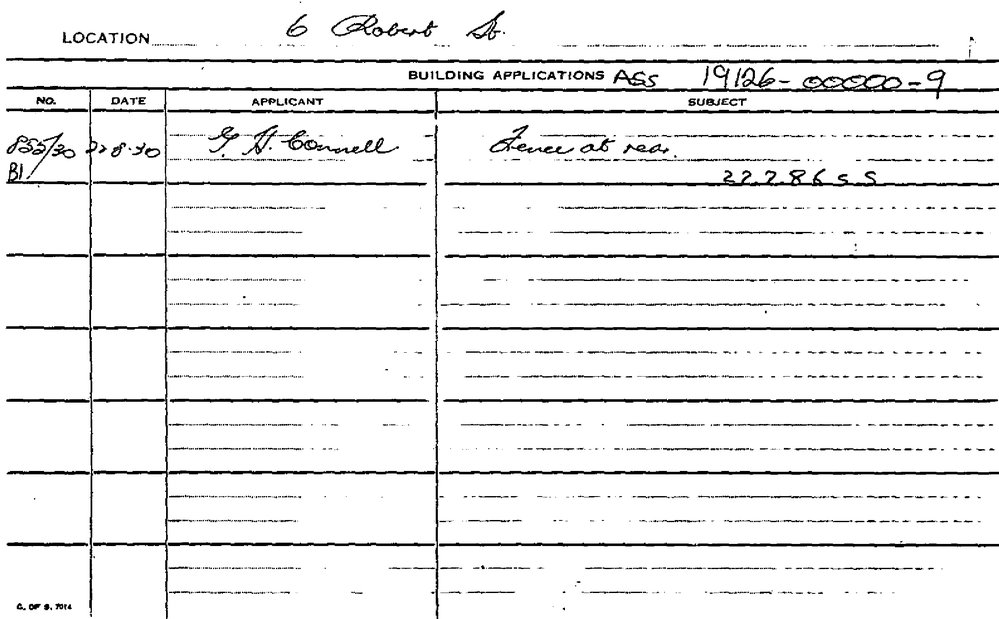 LOCATION 6 Robert St.
BUILDING APPLICATIONS ASS 19126-00000-9
NO. DATE APPLICANT SUBJECT
855/30 22·8·30 G. H. Connell Fence at rear.
BI. 22.2.86 S S
C. OF S. 7014